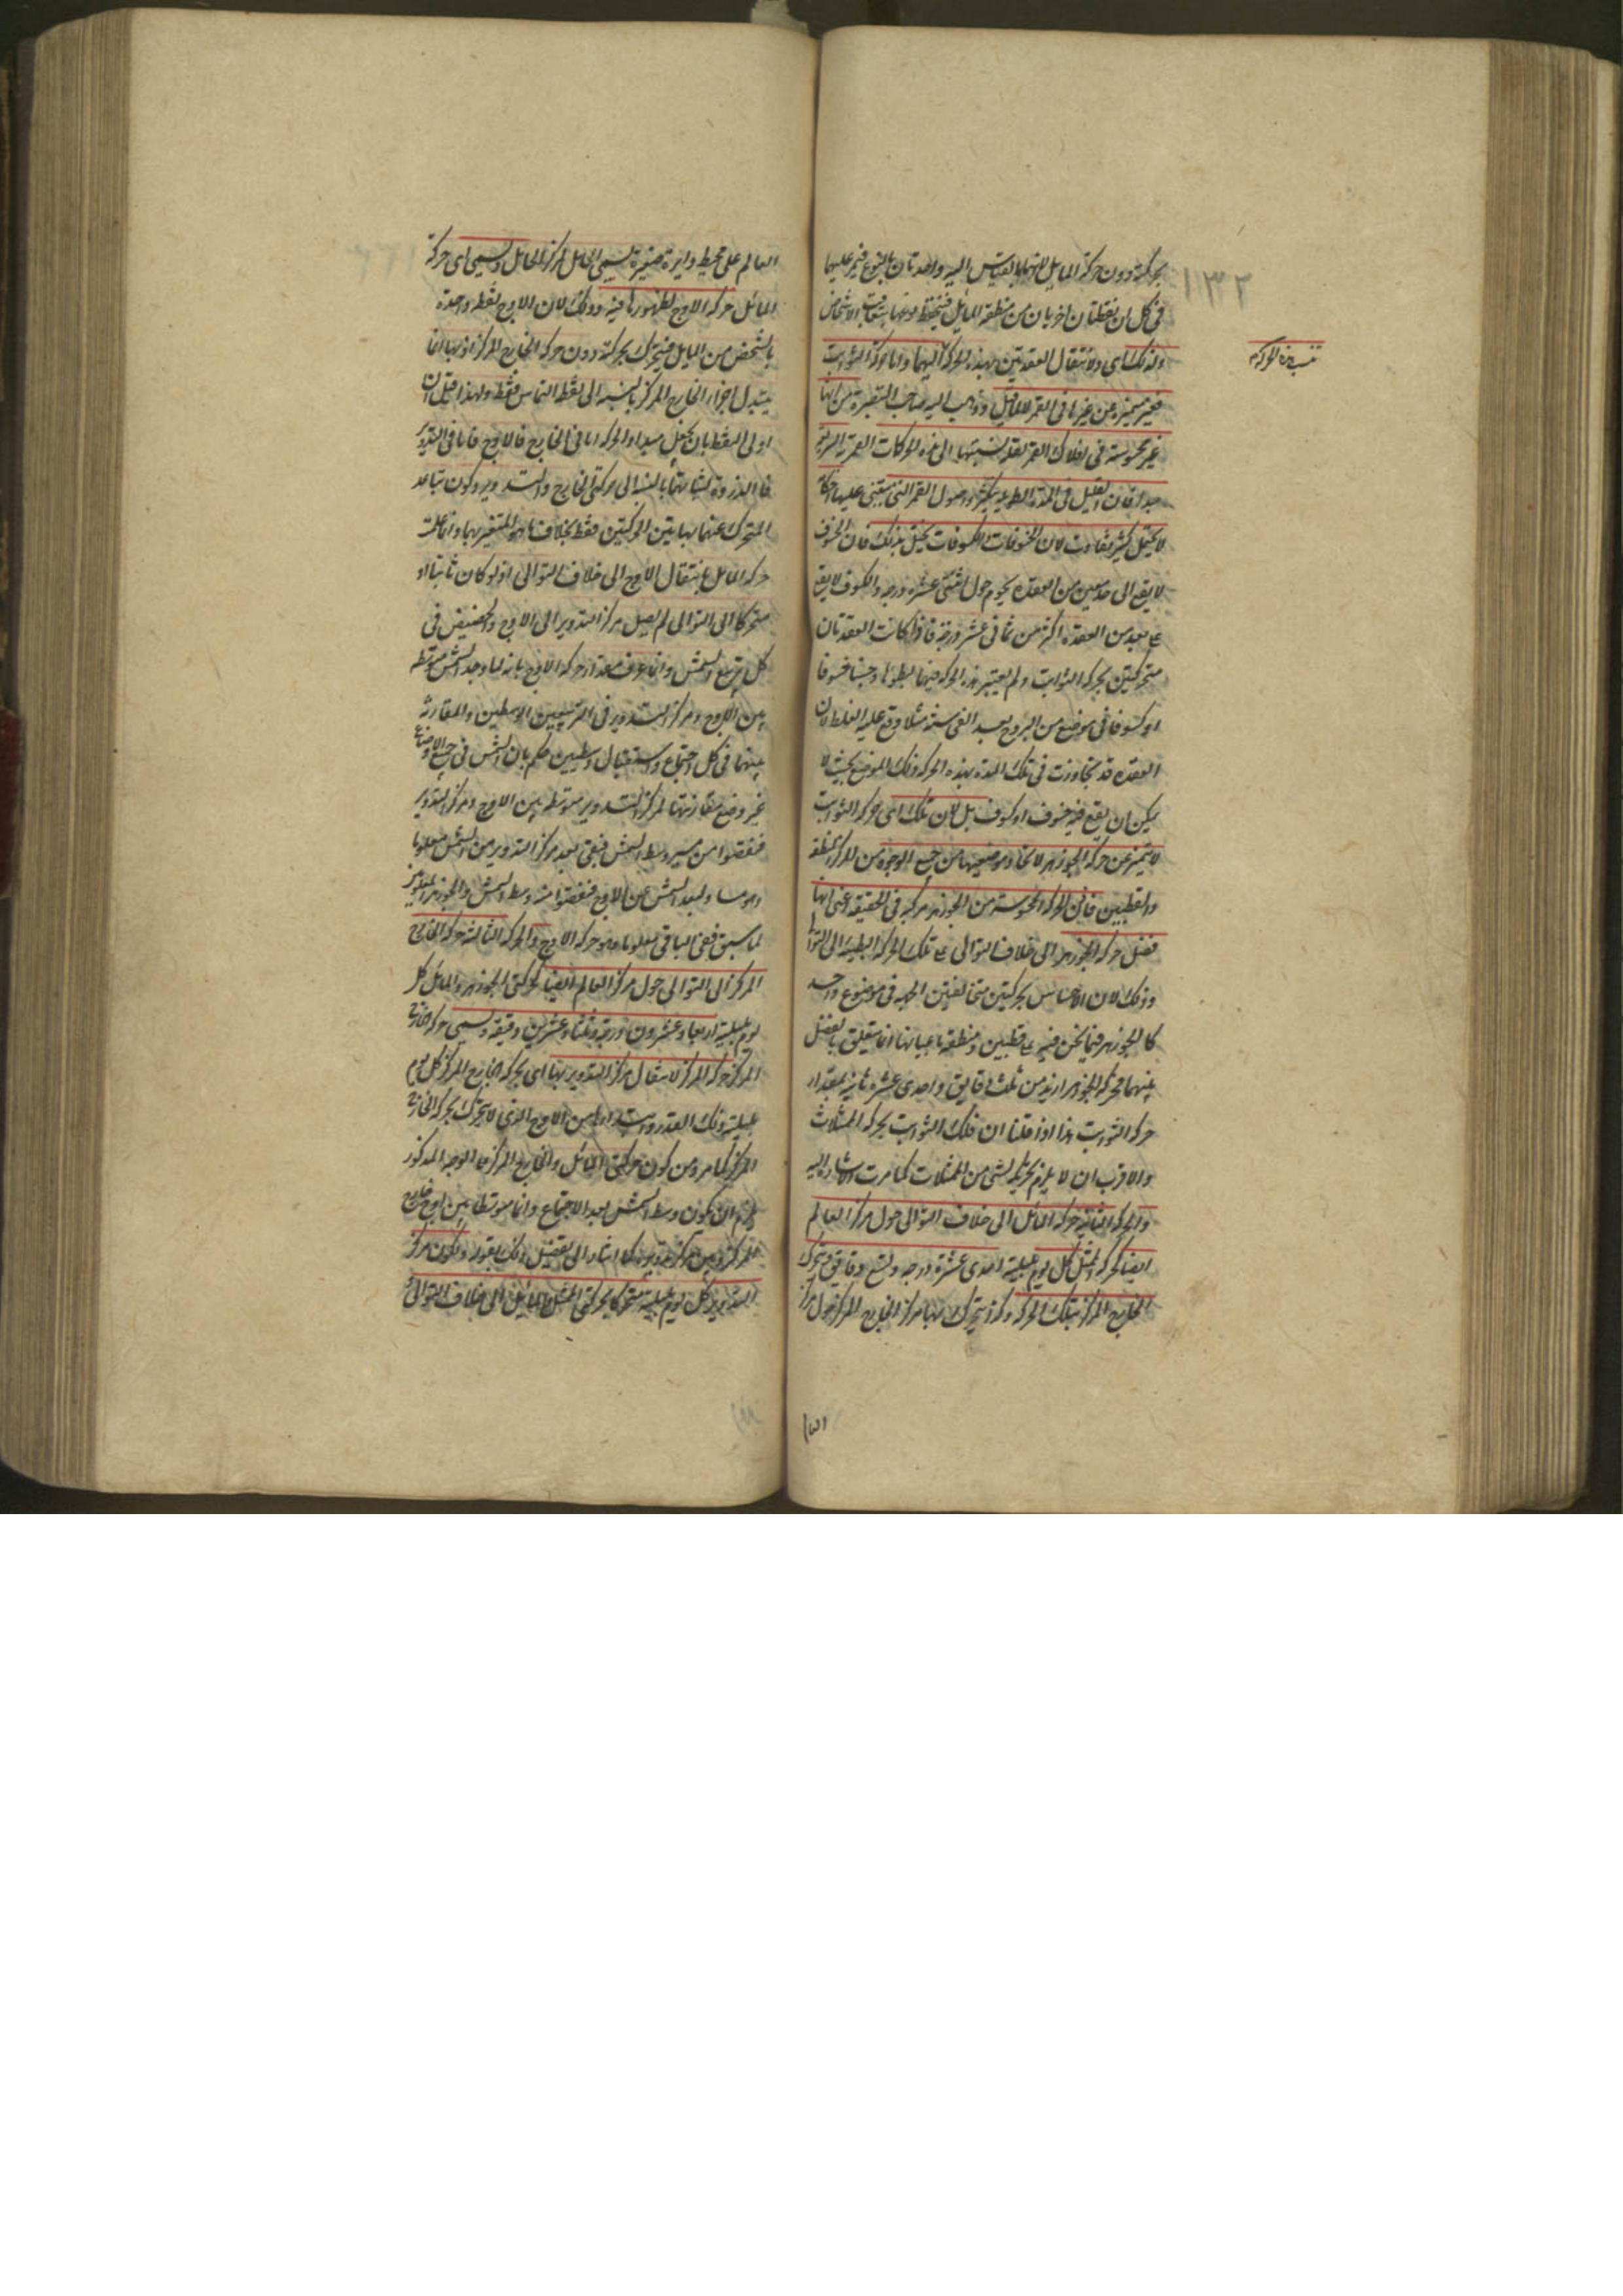 بحركته دون حركة المايل لانهما بالقياس اليه واحدتان بالنوع فيمر عليهما
في كل ان نقطتان اخريان من منطقة المايل فينحفظ نوعهما بتعاقب الاشخاص
١٣٢
ولذلك اى ولانتقال العقدتين بهذه الحركة اليهما واما حركة الثوابت
تنسب هذه الحركة
فغير مميزة عن غيرها في القمر للمايل وذهب اليه صاحب التبصرة من انها
غير محسوسة في افلاك القمر لقلة نسبتها الى هذه الحركات القمرية السريعة
جدا فان القليل في المدة الطويلة يكثر واصول القمر التي يبتنى عليها احكامه
لا يحتمل كثير تفاوت لان الخسوفات والكسوفات يختل بذلك فان الخسوف
لا يقع الى حد معين من العقدة يحوم حول اثنتى عشرة درجة والكسوف لا يقع
على بعد من العقدة اكثر من ثمانى عشر درجة فاذا كانت العقدتان
متحركتين بحركة الثوابت ولم يعتبر هذه الحركة فيهما لبطوها وحسبنا خسوفا
او كسوفا في موضع من البروج بعد الفى سنة مثلا وقع عليه الغلط لان
العقدة قد تجاوزت في تلك المدة بهذه الحركة ذلك الموضع بحيث لا
يمكن ان يقع فيه خسوف او كسوف بل لان تلك اى حركة الثوابت
لا يتميز عن حركة الجوزهر لاتحاد موضعيهما من جميع الوجوه من المركز والمنطقة
والقطبين فاذن الحركة المحسوسة من الجوزهر مركبة في الحقيقة اعنى انها
فضل حركة الجوزهر الى خلاف التوالى على تلك الحركة البطيئة الى التوالى
وذلك لان الاحساس بحركتين متخالفتين الجهة في موضوع واحد
كالجوزهر فيما نحن فيه على قطبين ومنطقة باعيانها انما يتعلق بالفضل
بينهما فحركة الجوزهر ازيد من ثلث دقايق واحدى عشرة ثانية بمقدار
حركة الثوابت هذا اذا قلنا ان فلك الثوابت يحركه الممثلات
والاقرب ان لا يلزم تحريكه لشى من الممثلات كما مرت الاشارة اليه
والحركة الثانية حركة المائل الى خلاف التوالى حول مركز العالم
ايضا كحركة الممثل كل يوم بليلته احدى عشرة درجة وتسع دقايق ويتحرك
الخارج المركز بتلك الحركة وكذا يتحرك بها مركز الخارج المركز حول مركز
العالم على محيط دايرة صغيرة يسمى الحامل لمركز الحامل ويسمى اى حركة
المائل حركة الاوج لظهورها فيه وذلك لان الاوج نقطة واحدة
بالشخص من المايل فيتحرك بحركته دون حركة الخارج المركز اذ بها انما
يتبدل اجزاء الخارج المركز بالنسبة الى نقطة التماس فقط ولهذا قيل ان
اولى النقط بان يجعل مبداء الحركة اما في الخارج فالاوج واما في التدوير
فالذروة لثباتهما بالنسبة الى حركتى الخارج والتدوير وكون تباعد
المتحرك عنهما بهاتين الحركتين فقط بخلاف ما هو المتغير بهما وانما علمت
حركة المايل بانتقال الاوج الى خلاف التوالى اذ لو كان ثابتا او
متحركا الى التوالى لم يصل مركز التدوير الى الاوج والحضيض في
كل تربيع الشمس وانما عرف مقدار حركة الاوج بانه لما وجد الشمس متوسطة
بين الاوج ومركز التدوير في التربيعين الوسطين والمقارنة
بينهما في كل اجتماع واستقبال وسطيين حكم بان الشمس في جميع الاوضاع
غير وضع مقارنتها لمركز التدوير متوسطة بين الاوج ومركز التدوير
فنقصوا من سير وسط الشمس فبقى بعد مركز التدوير من الشمس معلوما
وهو مساو لبعد الشمس عن الاوج فنقصوا منه وسط الشمس والجوزهر المعلومين
لما سبق فبقى الباقى معلوما وهو حركة الاوج والحركة الثالثة حركة الخارج
المركز الى التوالى حول مركز العالم ايضا كحركتى الجوزهر والمائل كل
يوم بليلته اربعا وعشرون درجة وثلثا وعشرين دقيقة ويسمى حركة الخارج
المركز حركة المركز لانتقال مركز التدوير بها اى بحركة الخارج المركز كل يوم
بليلته ذلك القدر وابتداوها من الاوج الذى لا يتحرك بحركة الخارج
المركز كما مر ومن كون حركتى المائل والخارج المركز على الوجه المذكور
يلزم ان يكون وسط الشمس بعد الاجتماع دائما متوسطا بين اوج خارج
المركز وبين مركز تدويره كما اشار الى تفصيل ذلك بقوله ولكون مركز
التدوير كل يوم بليلته متحركا بحركتى الممثل والمائل الى خلاف التوالى